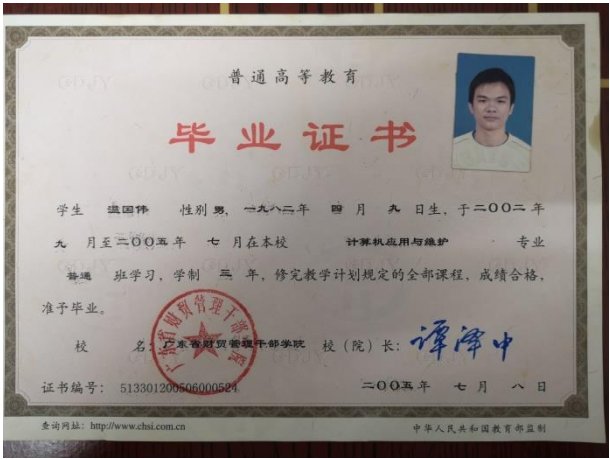 普通高等教育
毕业证书
学生 温国伟 性别 男, 一九八二年 四 月 九 日生, 于二〇〇二年
九 月至二〇〇五年 七 月在本校 计算机应用与维护 专业
普通 班学习, 学制 三 年, 修完教学计划规定的全部课程, 成绩合格,
准予毕业。
广东省财贸管理干部学院
校 名: 广东省财贸管理干部学院 校(院)长: 谭泽中
证书编号: 513301200506000524 二〇〇五年 七 月 八 日
查询网址: http://www.chsi.com.cn 中华人民共和国教育部监制